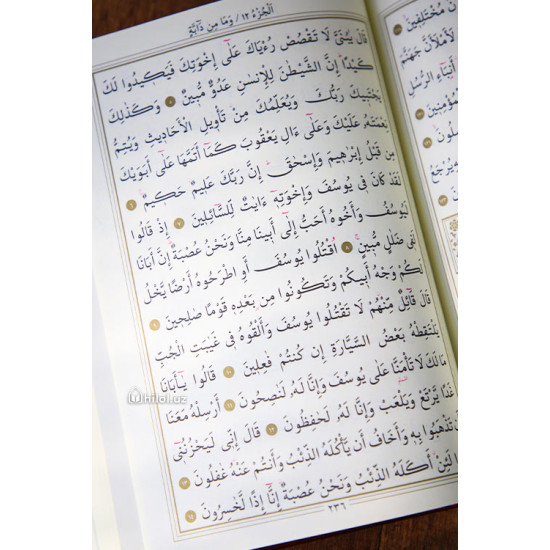 الْجُزْءُ ١٢ / وَمَا مِن دَآبَّةٍ
قَالَ يَٰبُنَىَّ لَا تَقْصُصْ رُءْيَاكَ عَلَىٰٓ إِخْوَتِكَ فَيَكِيدُوا۟ لَكَ
كَيْدًا إِنَّ الشَّيْطَٰنَ لِلْإِنسَٰنِ عَدُوٌّ مُّبِينٌ ٥ وَكَذَٰلِكَ
يَجْتَبِيكَ رَبُّكَ وَيُعَلِّمُكَ مِن تَأْوِيلِ الْأَحَادِيثِ وَيُتِمُّ
نِعْمَتَهُ عَلَيْكَ وَعَلَىٰٓ ءَالِ يَعْقُوبَ كَمَآ أَتَمَّهَا عَلَىٰٓ أَبَوَيْكَ
مِن قَبْلُ إِبْرَٰهِيمَ وَإِسْحَٰقَ إِنَّ رَبَّكَ عَلِيمٌ حَكِيمٌ ٦
لَّقَدْ كَانَ فِى يُوسُفَ وَإِخْوَتِهِٓ ءَايَٰتٌ لِّلسَّآئِلِينَ ٧ إِذْ قَالُوا۟
لَيُوسُفُ وَأَخُوهُ أَحَبُّ إِلَىٰٓ أَبِينَا مِنَّا وَنَحْنُ عُصْبَةٌ إِنَّ أَبَانَا
لَفِى ضَلَٰلٍ مُّبِينٍ ٨ اقْتُلُوا۟ يُوسُفَ أَوِ اطْرَحُوهُ أَرْضًا يَخْلُ
لَكُمْ وَجْهُ أَبِيكُمْ وَتَكُونُوا۟ مِن بَعْدِهِ قَوْمًا صَٰلِحِينَ ٩
قَالَ قَآئِلٌ مِّنْهُمْ لَا تَقْتُلُوا۟ يُوسُفَ وَأَلْقُوهُ فِى غَيَٰبَتِ الْجُبِّ
يَلْتَقِطْهُ بَعْضُ السَّيَّارَةِ إِن كُنتُمْ فَٰعِلِينَ ١٠ قَالُوا۟ يَٰٓأَبَانَا
مَا لَكَ لَا تَأْمَنَّا عَلَىٰ يُوسُفَ وَإِنَّا لَهُ لَنَٰصِحُونَ ١١ أَرْسِلْهُ مَعَنَا
غَدًا يَرْتَعْ وَيَلْعَبْ وَإِنَّا لَهُ لَحَٰفِظُونَ ١٢ قَالَ إِنِّى لَيَحْزُنُنِىٓ
أَن تَذْهَبُوا۟ بِهِ وَأَخَافُ أَن يَأْكُلَهُ الذِّئْبُ وَأَنتُمْ عَنْهُ غَٰفِلُونَ ١٣
قَالُوا۟ لَئِنْ أَكَلَهُ الذِّئْبُ وَنَحْنُ عُصْبَةٌ إِنَّآ إِذًا لَّخَٰسِرُونَ ١٤
٢٣٦
hilol.uz
مُخْتَلِفِينَ
لَأَمْلَأَنَّ جَهَنَّمَ
أَنۢبَآءِ الرُّسُلِ